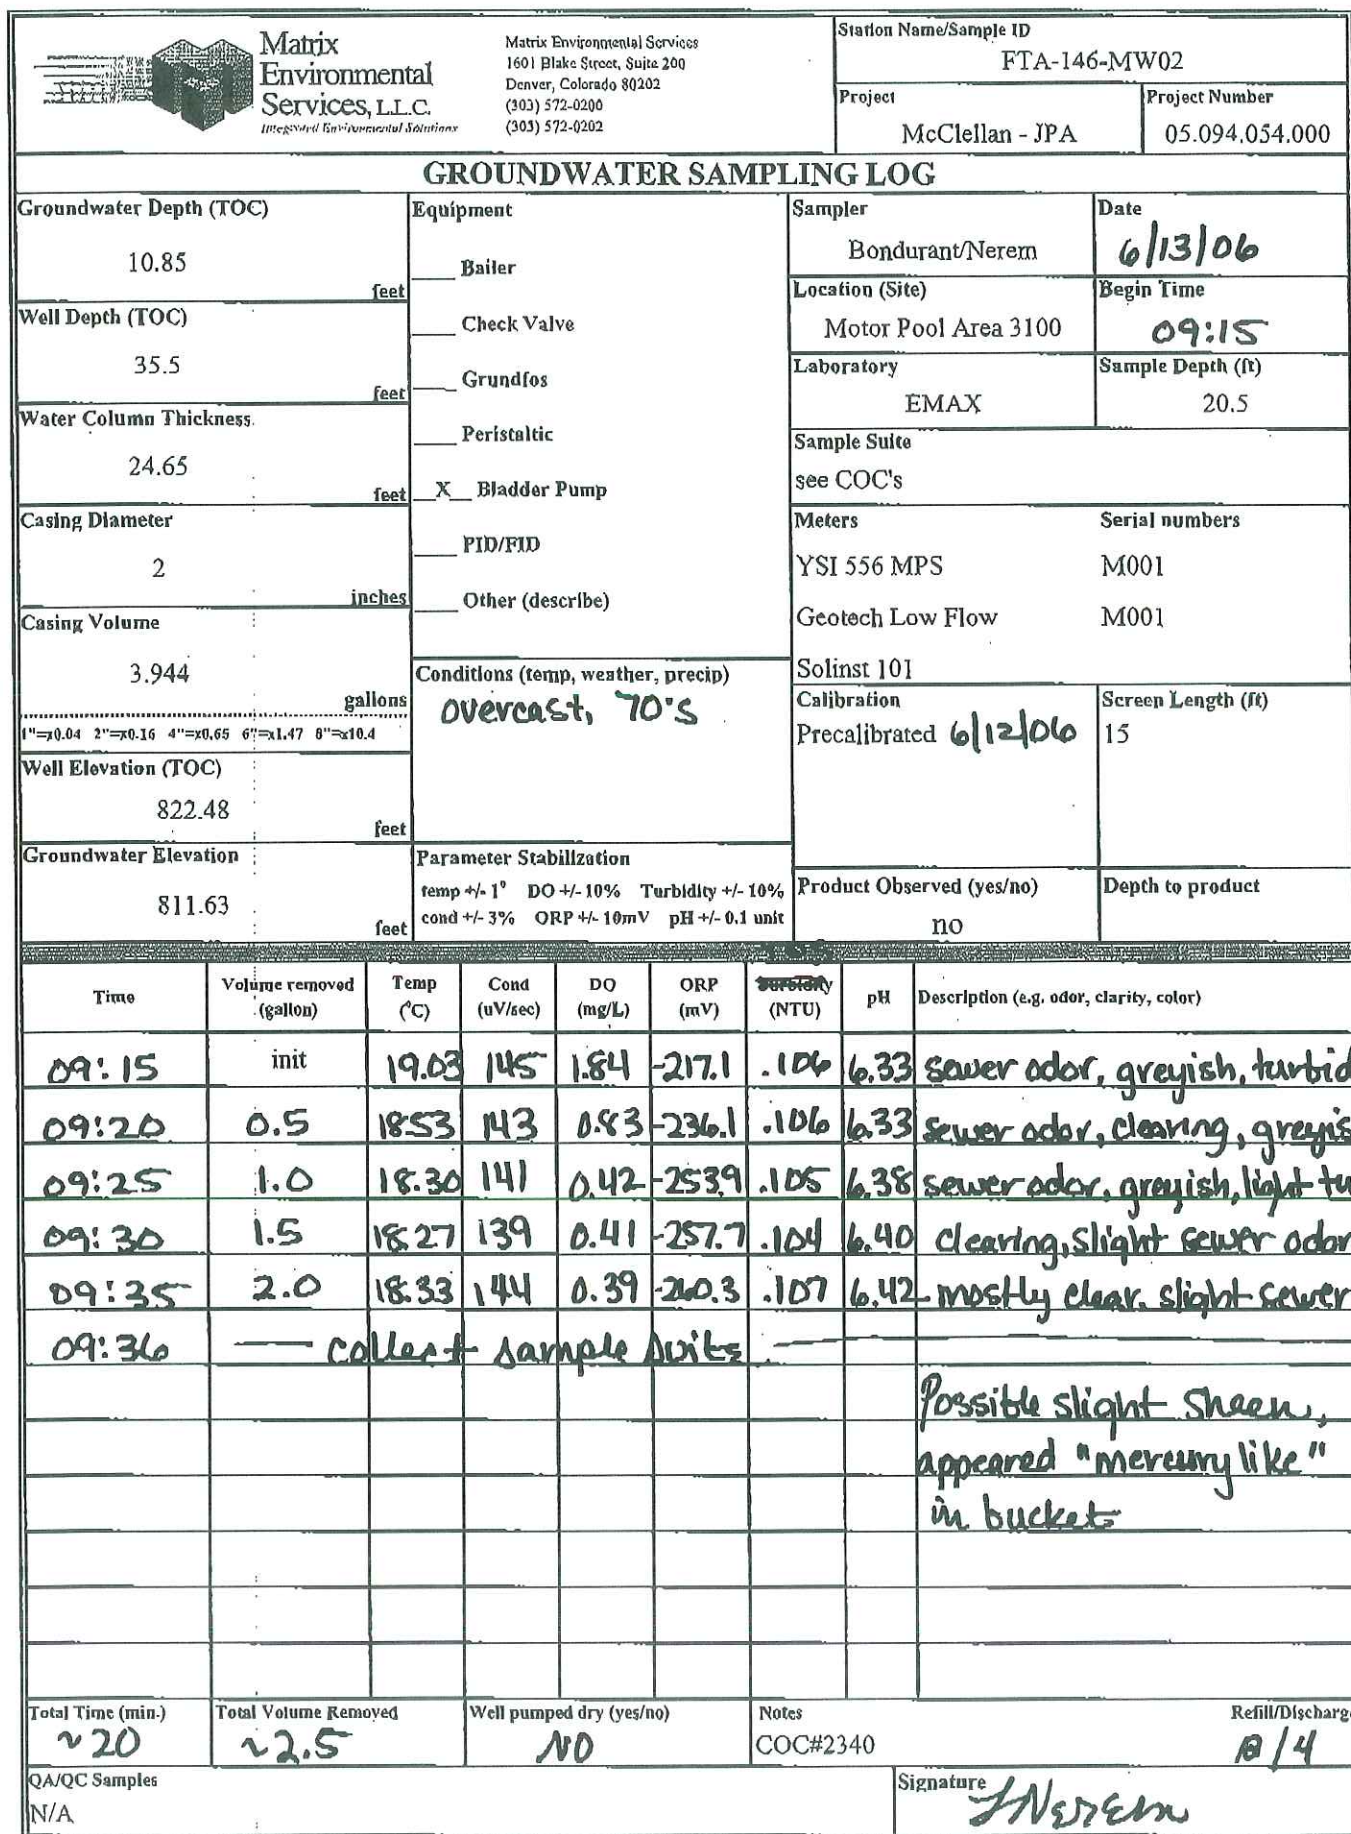 Matrix
Environmental
Services, L.L.C.
Integrated Environmental Solutions
Matrix Environmental Services
1601 Blake Street, Suite 200
Denver, Colorado 80202
(303) 572-0200
(303) 572-0202
Station Name/Sample ID
FTA-146-MW02
Project
McClellan - JPA
Project Number
05.094.054.000
GROUNDWATER SAMPLING LOG
Groundwater Depth (TOC)
10.85
feet
Well Depth (TOC)
35.5
feet
Water Column Thickness
24.65
feet
Casing Diameter
2
inches
Casing Volume
3.944
gallons
1"=x0.04 2"=x0.16 4"=x0.65 6"=x1.47 8"=x10.4
Well Elevation (TOC)
822.48
feet
Groundwater Elevation
811.63
feet
Equipment
___ Bailer
___ Check Valve
___ Grundfos
___ Peristaltic
_X_ Bladder Pump
___ PID/FID
___ Other (describe)
Conditions (temp, weather, precip)
overcast, 70's
Parameter Stabilization
temp +/- 1° DO +/- 10% Turbidity +/- 10%
cond +/- 3% ORP +/- 10mV pH +/- 0.1 unit
Sampler
Bondurant/Nerem
Date
6/13/06
Location (Site)
Motor Pool Area 3100
Begin Time
09:15
Laboratory
EMAX
Sample Depth (ft)
20.5
Sample Suite
see COC's
Meters Serial numbers
YSI 556 MPS M001
Geotech Low Flow M001
Solinst 101
Calibration
Precalibrated 6/12/06
Screen Length (ft)
15
Product Observed (yes/no)
no
Depth to product
Time Volume removed (gallon) Temp (°C) Cond (uV/sec) DO (mg/L) ORP (mV) Turbidity (NTU) pH Description (e.g. odor, clarity, color)
09:15 init 19.03 145 1.84 -217.1 .106 6.33 sewer odor, greyish, turbid
09:20 0.5 18.53 143 0.83 -236.1 .106 6.33 sewer odor, clearing, greyis
09:25 1.0 18.30 141 0.42 -253.9 .105 6.38 sewer odor, greyish, light tu
09:30 1.5 18.27 139 0.41 -257.7 .104 6.40 clearing, slight sewer odor
09:35 2.0 18.33 144 0.39 -260.3 .107 6.42 mostly clear, slight sewer
09:36 — collect sample suites —
Possible slight sheen,
appeared "mercury like"
in bucket
Total Time (min.)
~20
Total Volume Removed
~2.5
Well pumped dry (yes/no)
NO
Notes
COC#2340
Refill/Discharge
/4
QA/QC Samples
N/A
Signature
LNerem